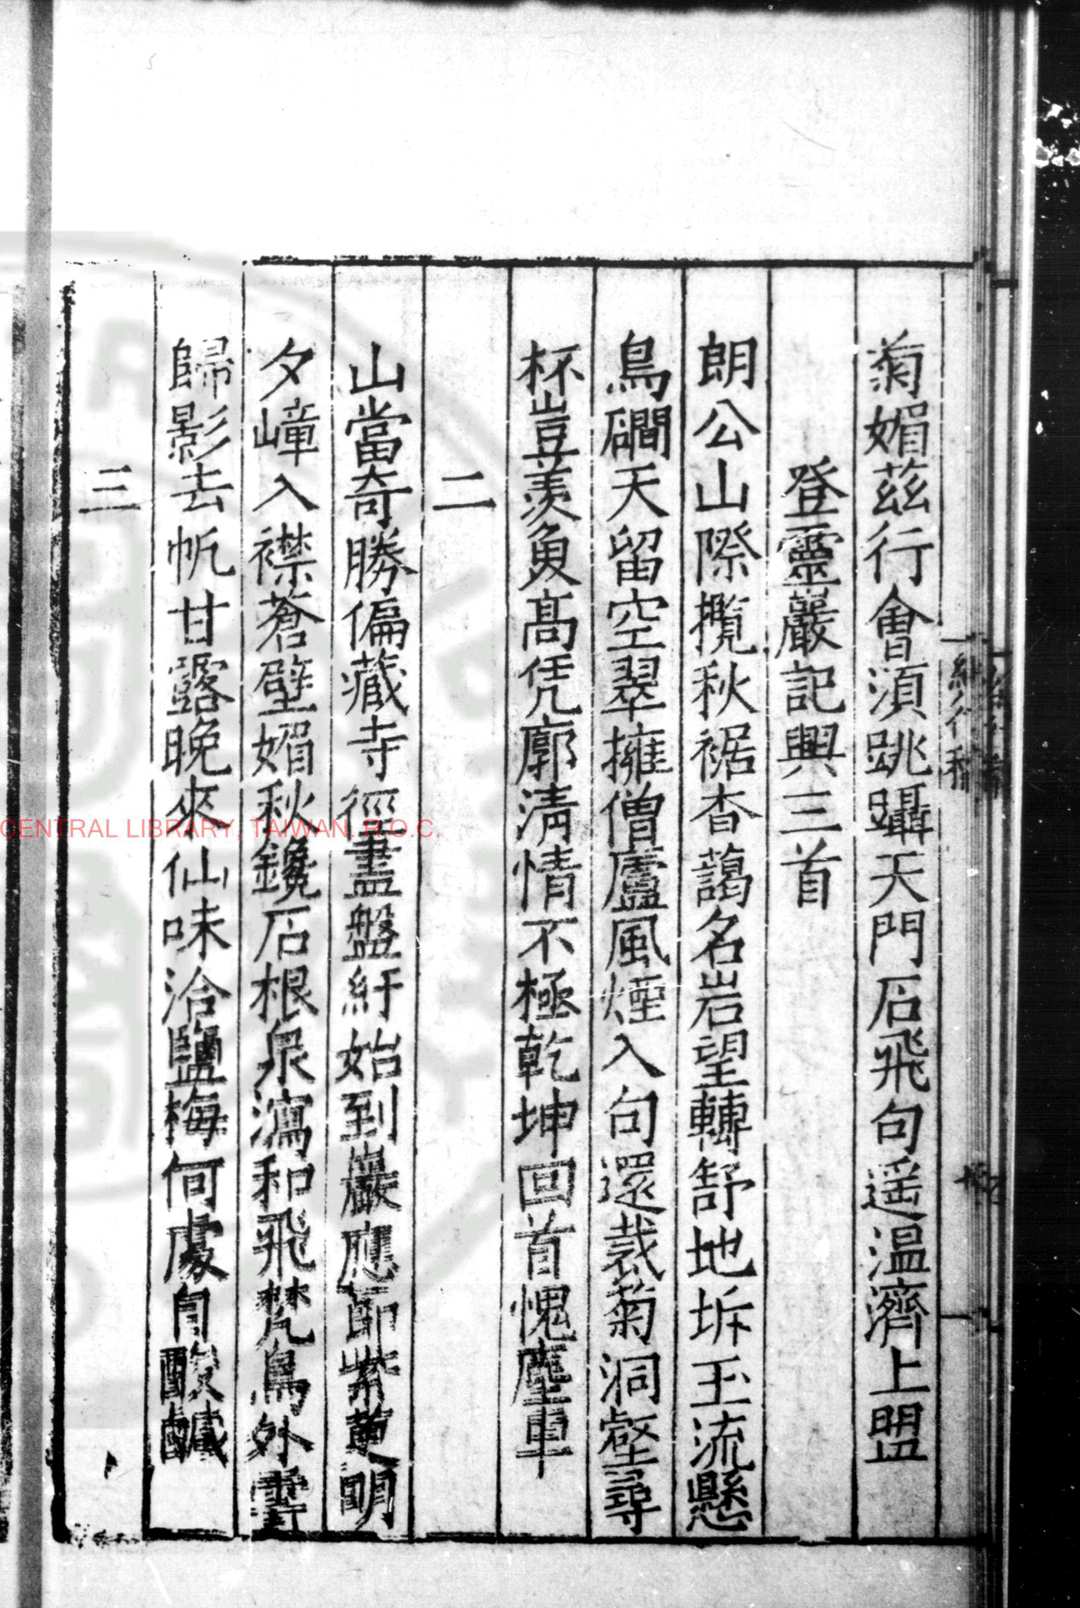 菊媚茲行會須跳躡天門石飛句遥温濟上盟
登靈巖記興三首
朗公山際攬秋裾杳藹名岩望轉舒地坼玉流懸
鳥礀天留空翠擁僧廬風煙入句還裁菊洞壑尋
杯豈羨魚高凭廓清情不極乾坤回首愧塵車
二
山當奇勝偏藏寺徑盡盤紆始到巖應節紫萸明
夕嶂入襟蒼壁媚秋鑱石根泉瀉和飛梵鳥外雲
歸影去帆甘露晚來仙味洽鹽梅何處自酸鹹
三
CENTRAL LIBRARY, TAIWAN, R.O.C.